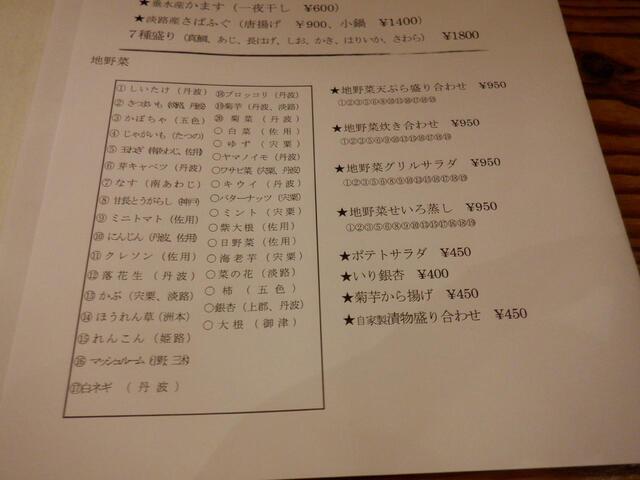 ★垂水産かます（一夜干し ¥600）
★淡路産さばふぐ（唐揚げ ¥900、小鍋 ¥1400）
7種盛り（真鯛、あじ、長はげ、しお、かき、はりいか、さわら） ¥1800
地野菜
①しいたけ（丹波）
②さつまいも
③かぼちゃ（五色）
④じゃがいも（たつの）
⑤玉ねぎ
⑥芽キャベツ（丹波）
⑦なす（南あわじ）
⑧甘長とうがらし（神戸）
⑨ミニトマト（佐用）
⑩にんじん（丹波、佐用）
⑪クレソン（佐用）
⑫落花生（丹波）
⑬かぶ（宍粟、淡路）
⑭ほうれん草（洲本）
⑮れんこん（姫路）
⑯マッシュルーム
⑰白ネギ（丹波）
⑱ブロッコリ（丹波）
⑲菊芋（丹波、淡路）
⑳菊菜（丹波）
○白菜（佐用）
○ゆず（宍粟）
○ヤマノイモ（丹波）
○ワサビ菜（宍粟、丹波）
○キウイ（丹波）
○バターナッツ（宍粟）
○ミント（宍粟）
○紫大根（佐用）
○日野菜（佐用）
○海老芋（宍粟）
○菜の花（淡路）
○柿（五色）
○銀杏（上郡、丹波）
○大根（御津）
★地野菜天ぷら盛り合わせ ¥950
①②③⑤⑥⑧⑩⑮⑯⑰⑱⑲
★地野菜炊き合わせ ¥950
★地野菜グリルサラダ ¥950
★地野菜せいろ蒸し ¥950
★ポテトサラダ ¥450
★いり銀杏 ¥400
★菊芋から揚げ ¥450
★自家製漬物盛り合わせ ¥450